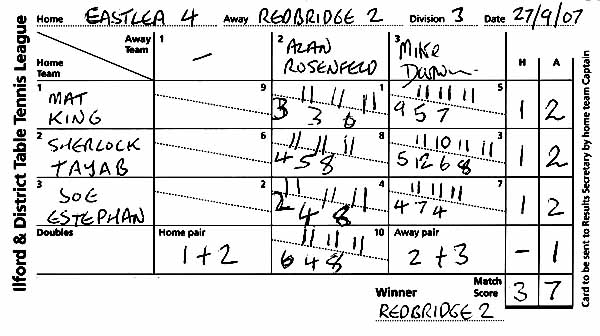 Ilford & District Table Tennis League
Home EASTLEA 4 Away REDBRIDGE 2 Division 3 Date 27/9/07
Away Team
Home Team
1 —
2 ALAN ROSENFELD
3 MIKE
H A
1 MAT KING
9
1 11 11 11
3 3 6
5 11 11 11
9 5 7
1 2
2 SHERLOCK TAYAB
6
8 11 11 11
4 5 8
3 11 10 11 11
5 12 6 8
1 2
3 JOE ESTEPHAN
2
4 11 11 11
2 4 8
7 11 11 11
4 7 4
1 2
Doubles
Home pair 1 + 2
10 11 11 11
6 4 8
Away pair 2 + 3
- 1
Winner REDBRIDGE 2
Match Score 3 7
Card to be sent to Results Secretary by home team Captain